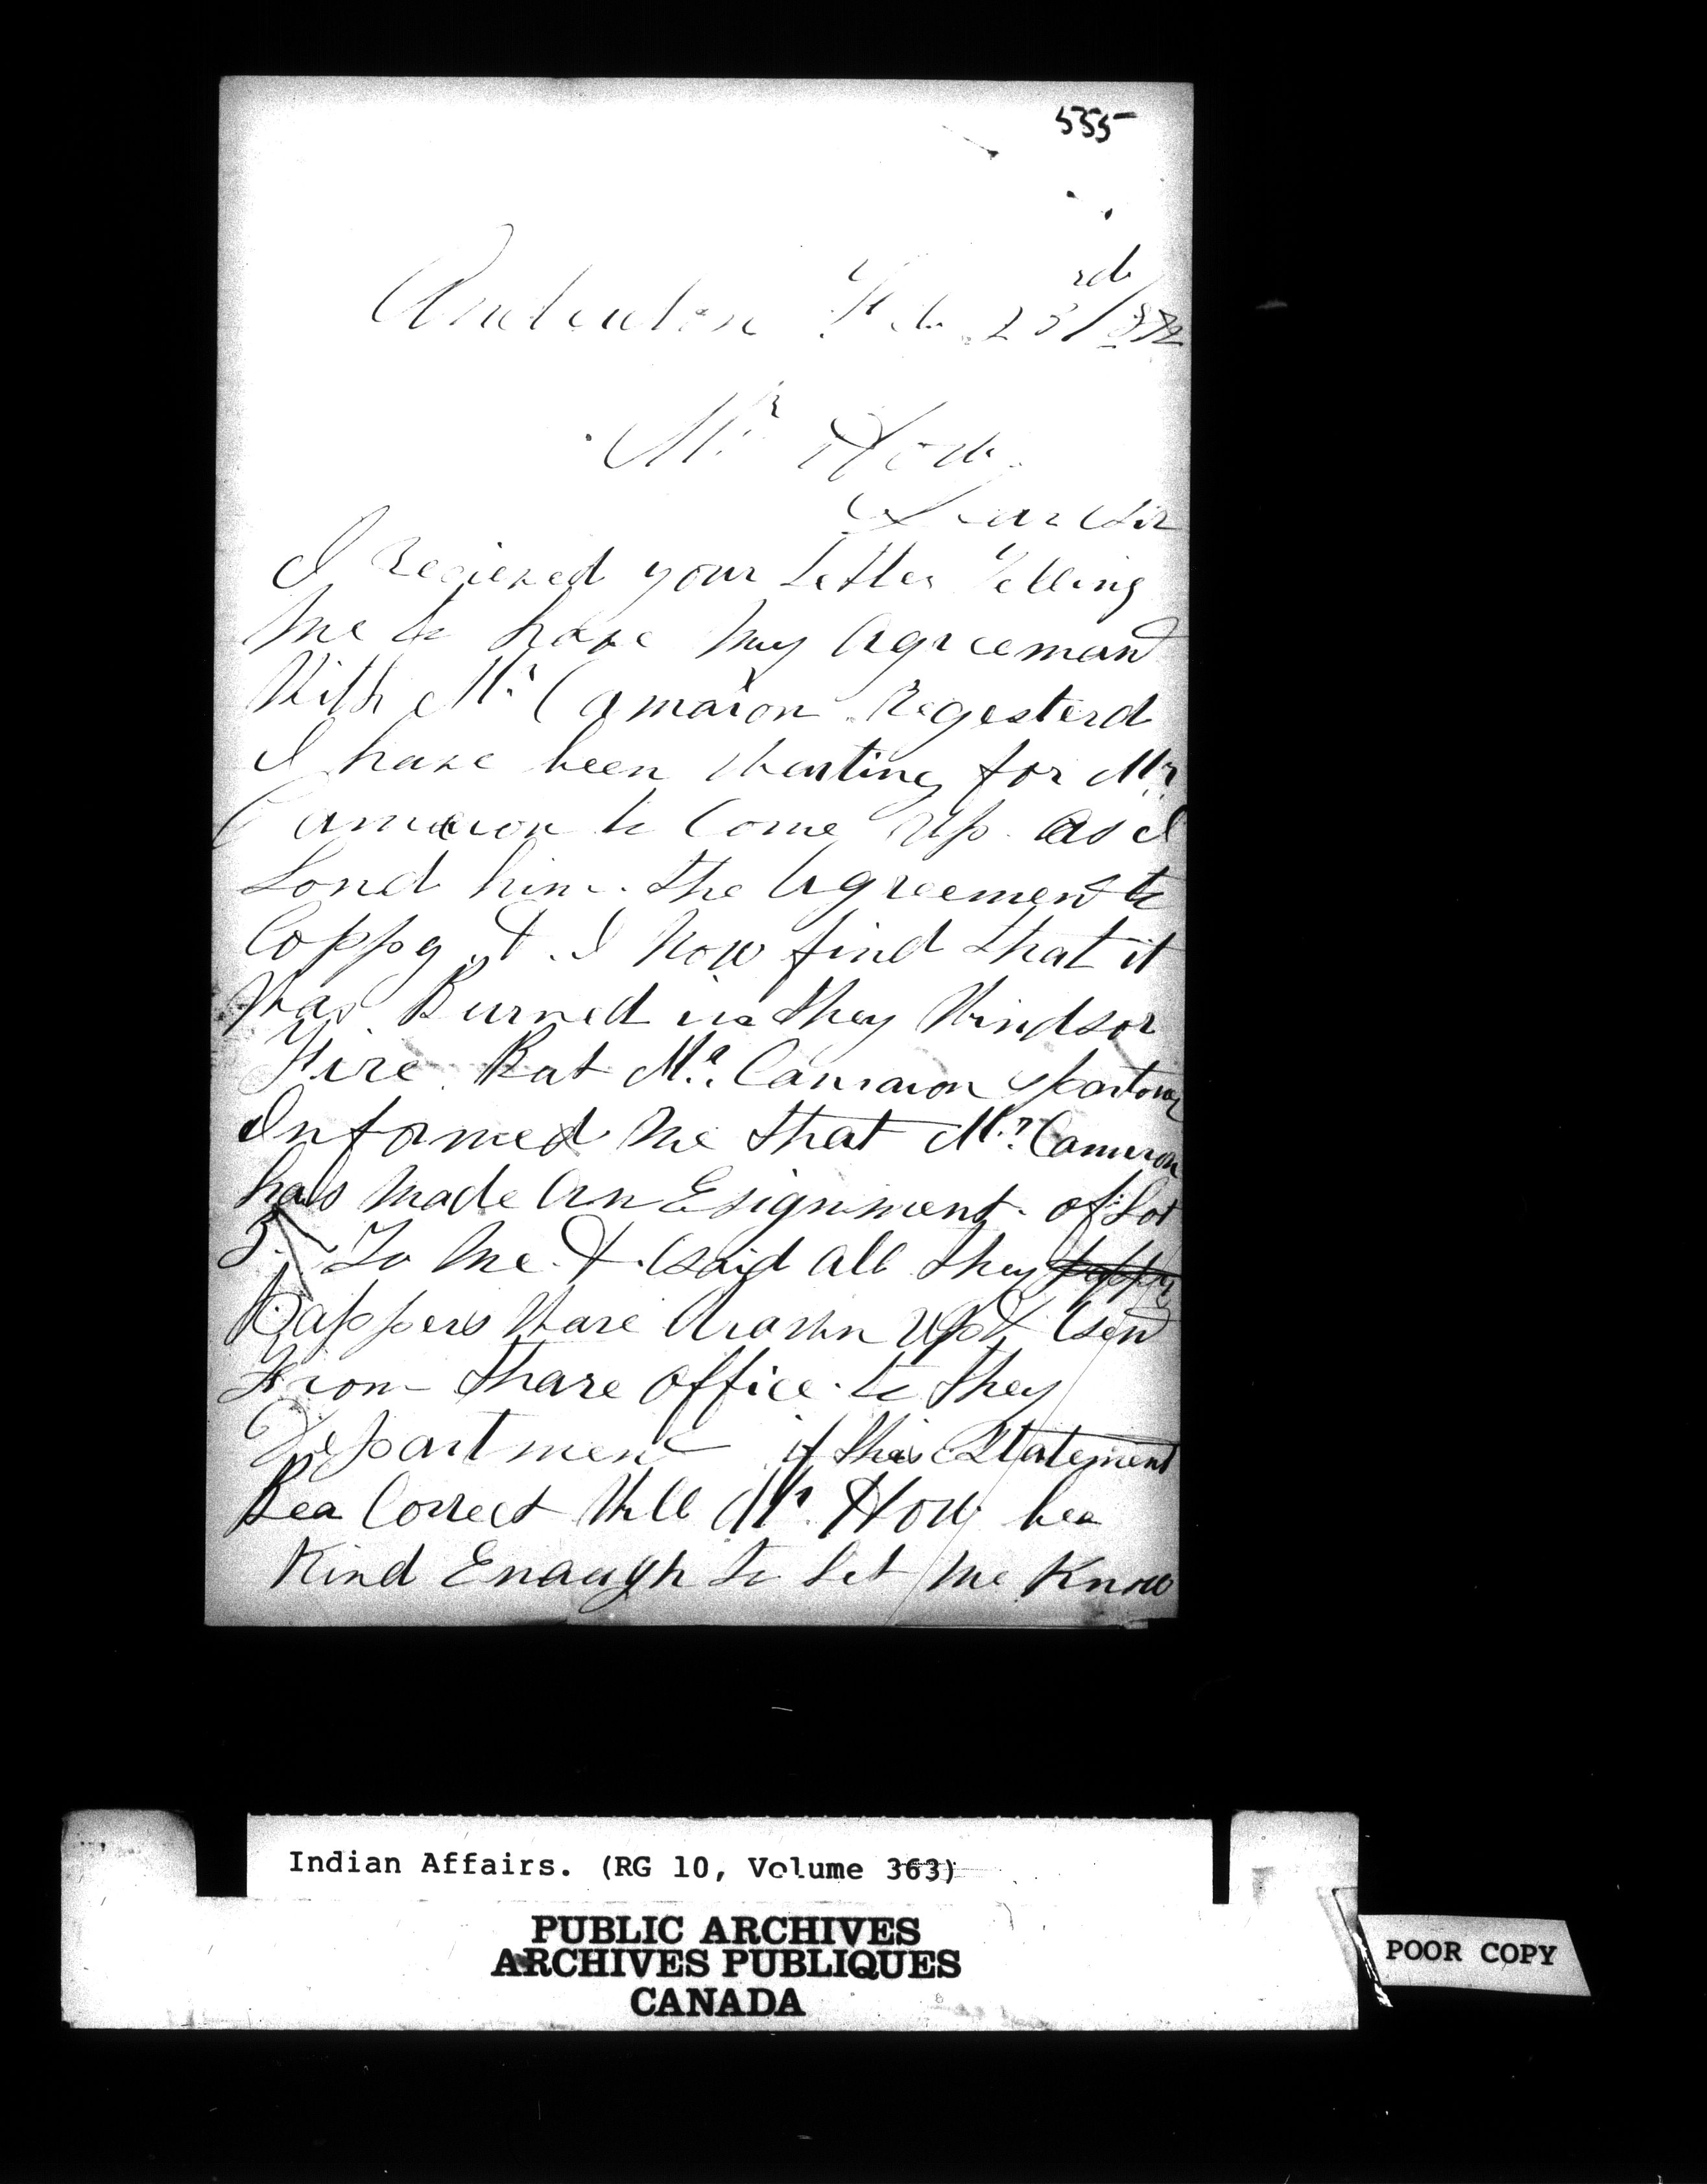 535
Anderdon Feb 23rd/872
Mr How
Dear Sir
I Recieved your Letter Telling
Me to have My Agreemant
With Mr Camaron Regesterd
I have been Waiting for Mr
Camaron to Come up as I
Lond him the Agreement to
Coppy & I Now find that it
Was Burned in they Windsor
Fire But Mr Camaron
Informed Me that Mr Cameron
has Made An Esignment of Lot
3 To Me & Said all they
Pappers Ware Drawn up & Sent
From thare office to they
Department if this Statement
Bea Correct Will Mr How bea
Kind Enaugh to Let Me Know
Indian Affairs. (RG 10, Volume 363)
PUBLIC ARCHIVES
ARCHIVES PUBLIQUES
CANADA
POOR COPY